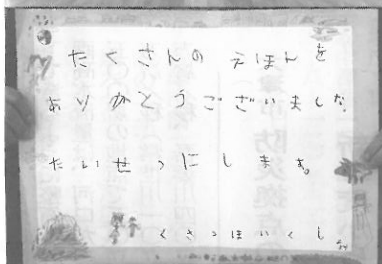 たくさんの えほんを
ありがとうございました。
たいせつにします。
くさつほいくしょ